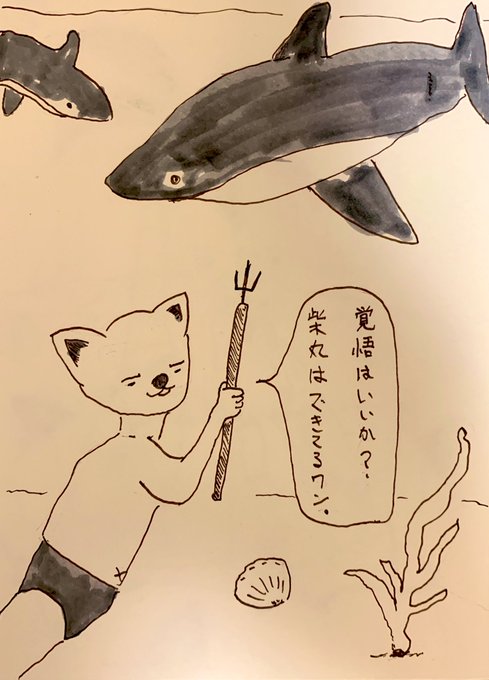 覚悟はいいか？
柴丸はできてるワン。